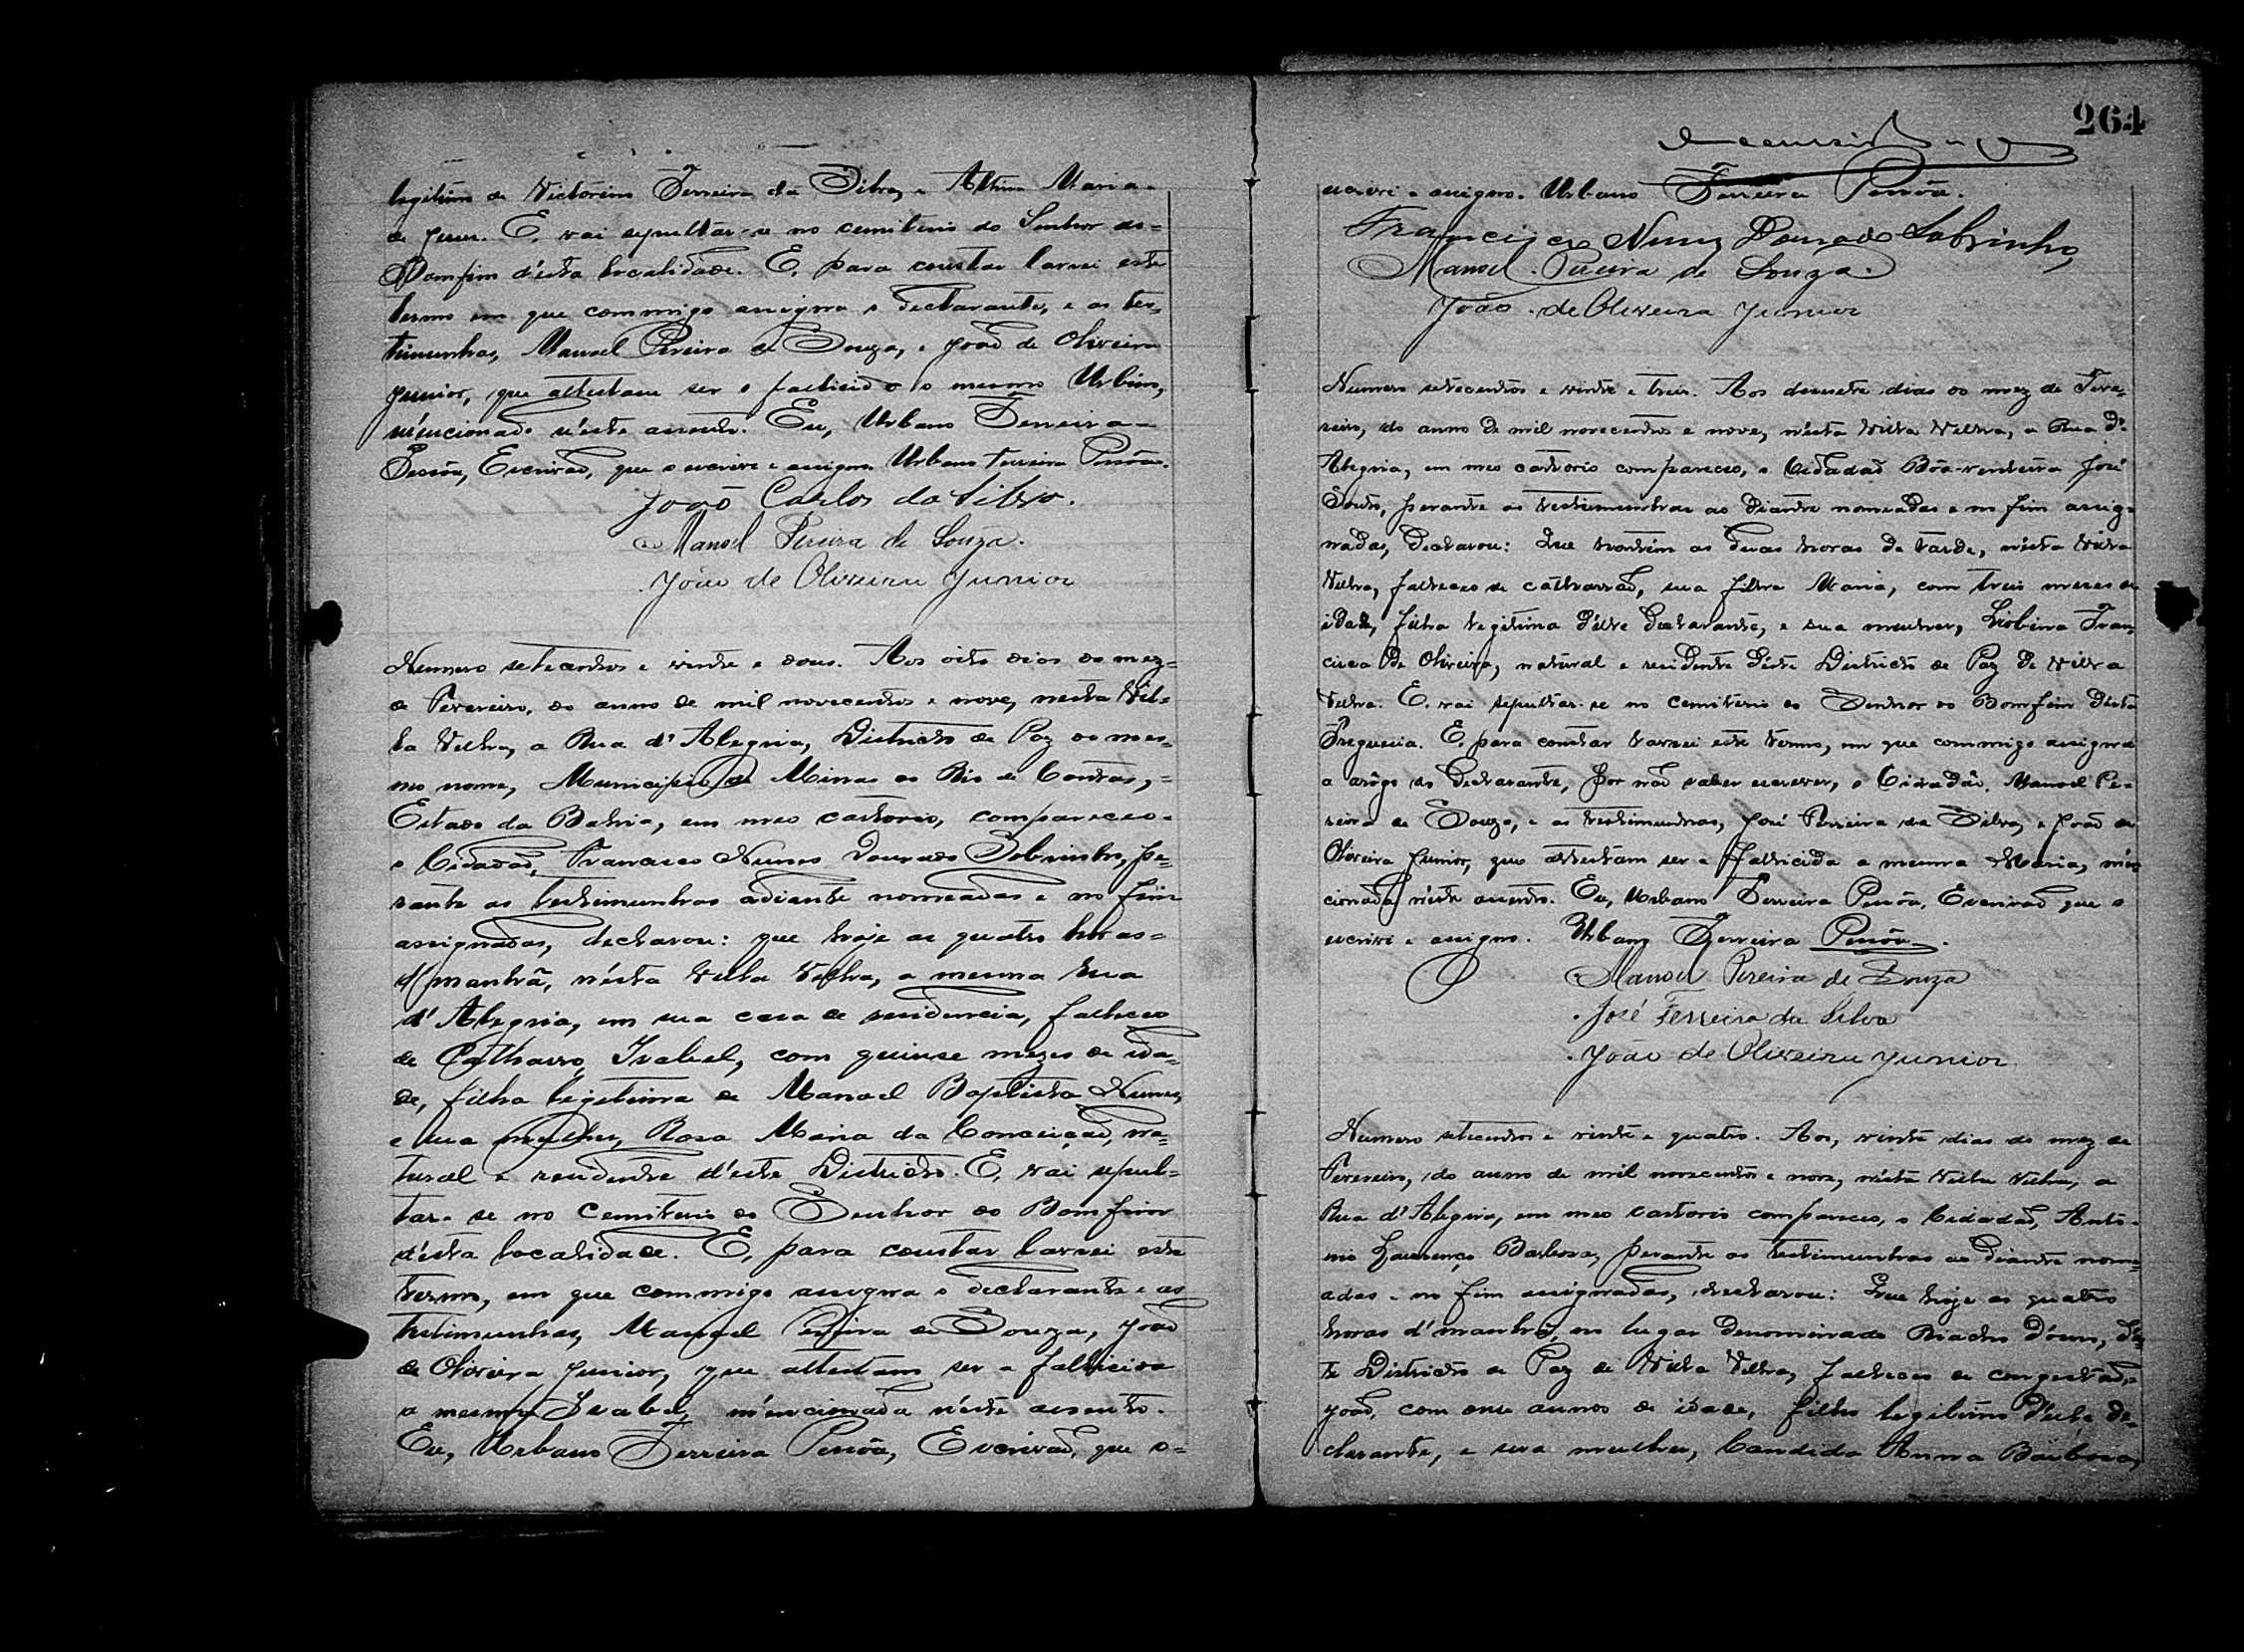 legitimo de Victorino Ferreira da Silva, e Altina Maria
de Jesus. E, vai sepultar-se no cemiterio do Senhor do=
Bomfim d'esta localidade. E, para constar lavrei este
termo em que commigo assigna o declarante, e as tes=
timunhas, Manoel Pereira de Souza, e João de Oliveira
Junior, que attestam ser o fallicido o mesmo Urbino,
mencionado n'este assento. Eu, Urbano Ferreira-
Pessôa, Escrivão, que o escrivi e assigno. Urbano Ferreira Pessôa.
João Carlos da Silva.
Manoel Pereira de Souza.
João de Oliveira Junior
Numero setecentos e vinte e dous. Aos oito dias do mez=
de Fevereiro, do anno de mil novecentos e nove, nesta Vil=
la Velha, a Rua d'Alegria, Districto de Paz do mes=
mo nome, Municipio de Minas do Rio de Contas,=
Estado da Bahia, em meo cartorio, compareceo-
o Cidadão, Francisco Nunes Dourado Sobrinho, pe=
rante as testimunhas adiante nomeadas e no fim
assignadas, declarou: que hoje as quatro horas=
d'manhã, n'esta Villa Velha, a mesma Rua
d'Alegria, em sua casa de residencia, falleceo
de Catharro, Isabel, com quinse mezes de ida=
de, filha legitima de Manoel Baptista Nunes,
e sua mulher, Rosa Maria da Conceição, na=
tural e residente d'este Districto. E, vai sepul=
tar-se no Cemiterio do Senhor do Bomfim
d'esta localidade. E, para constar lavrei este
termo, em que commigo assigna o declarante e as
testimunhas, Manoel Pereira de Souza, João
de Oliveira Junior, que attestam ser a fallicida
a mesma Isabel, mencionada n'este assento.
Eu, Urbano Ferreira Pessôa, Escrivão, que o=
264
escrivi e assigno. Urbano Ferreira Pessôa.
Francisco Nunes Dourado Sobrinho,
Manoel Pereira de Souza.
João de Oliveira Junior
Numero setecentos e vinte e treis. Aos desesete dias do mez de Feve=
reiro, do anno de mil novecentos e nove, n'esta Villa Velha, a Rua d'
Alegria, em meo cartorio compareceo, o Cidadão Bôa-ventura José
Souto, perante as testimunhas ao diante nomeadas e no fim assig=
nadas, declarou: Que hontem as duas horas da tarde, n'esta Villa
Velha, falleceo de catharrão, sua filha Maria, com treis mezes de
idade, filha legitima d'este declarante, e sua mulher, Fran=
cisca de Oliveira, natural e residente d'este Districto de Paz de Villa
Velha. E, vai sepultar-se no cemiterio do Senhor do Bomfim d'esta
Freguesia. E, para constar lavrei este termo, em que commigo assigna
a arôgo do declarante, por não saber escrever, o Cidadão, Manoel Pe=
reira de Souza, e as testimunhas, José Ferreira da Silva, e João de
Oliveira Junior, que attestam ser a fallicida a mesma Maria, men=
cionada n'este assento. Eu, Urbano Ferreira Pessôa, Escrivão que o
escrivi e assigno. Urbano Ferreira Pessôa.
Manoel Pereira de Souza
José Ferreira da Silva
João de Oliveira Junior
Numero setecentos e vinte e quatro. Aos, vinte dias do mez de
Fevereiro, do anno de mil novecentos e nove, n'esta Villa Velha, a
Rua d'Alegria, em meo cartorio compareceo, o Cidadão, Anto-
nio Lourenço Barbosa, perante as testimunhas ao diante nome=
adas e no fim assignadas, declarou: Que hoje as quatro
horas d'manhã, no lugar denominado Riacho d'ouro, d'es=
te Districto de Paz de Villa Velha, falleceo de congestão,
João, com onse annos de idade, filho legitimo d'este de=
clarante, e sua mulher, Candida Anna Barbosa,